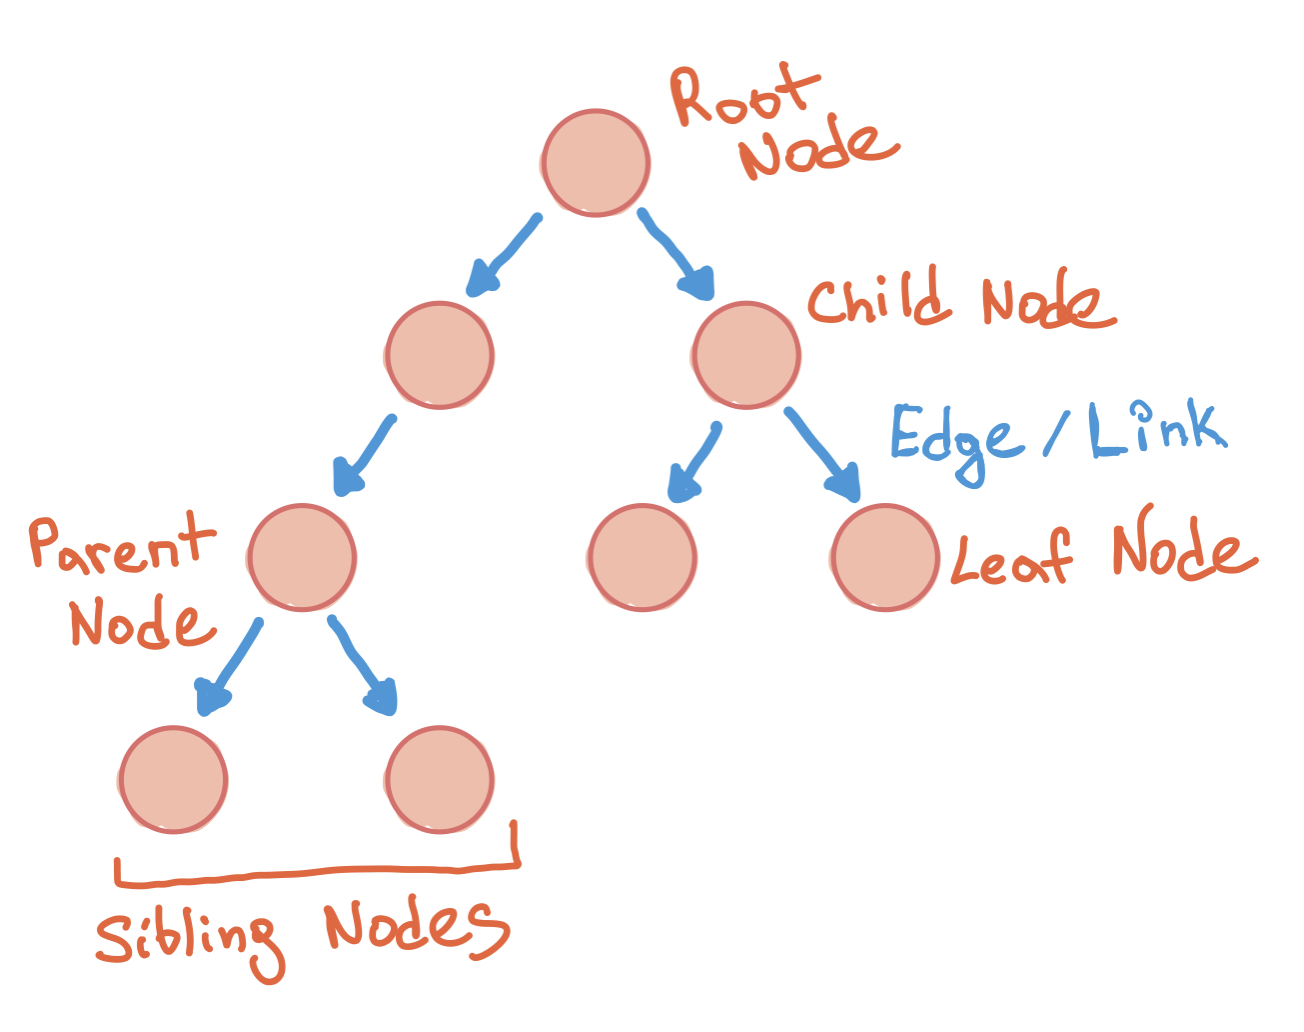 Root
Node
Child Node
Edge / Link
Parent
Node
Leaf Node
Sibling Nodes